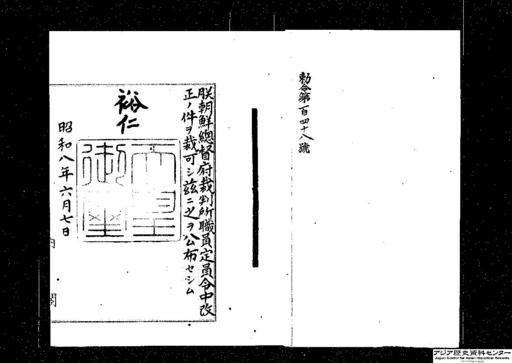 勅令第百四十八號
朕朝鮮總督府裁判所職員定員令中改
正ノ件ヲ裁可シ茲ニ之ヲ公布セシム
裕仁
天皇御璽
昭和八年六月七日
内閣
アジア歴史資料センター
Japan Center for Asian Historical Records